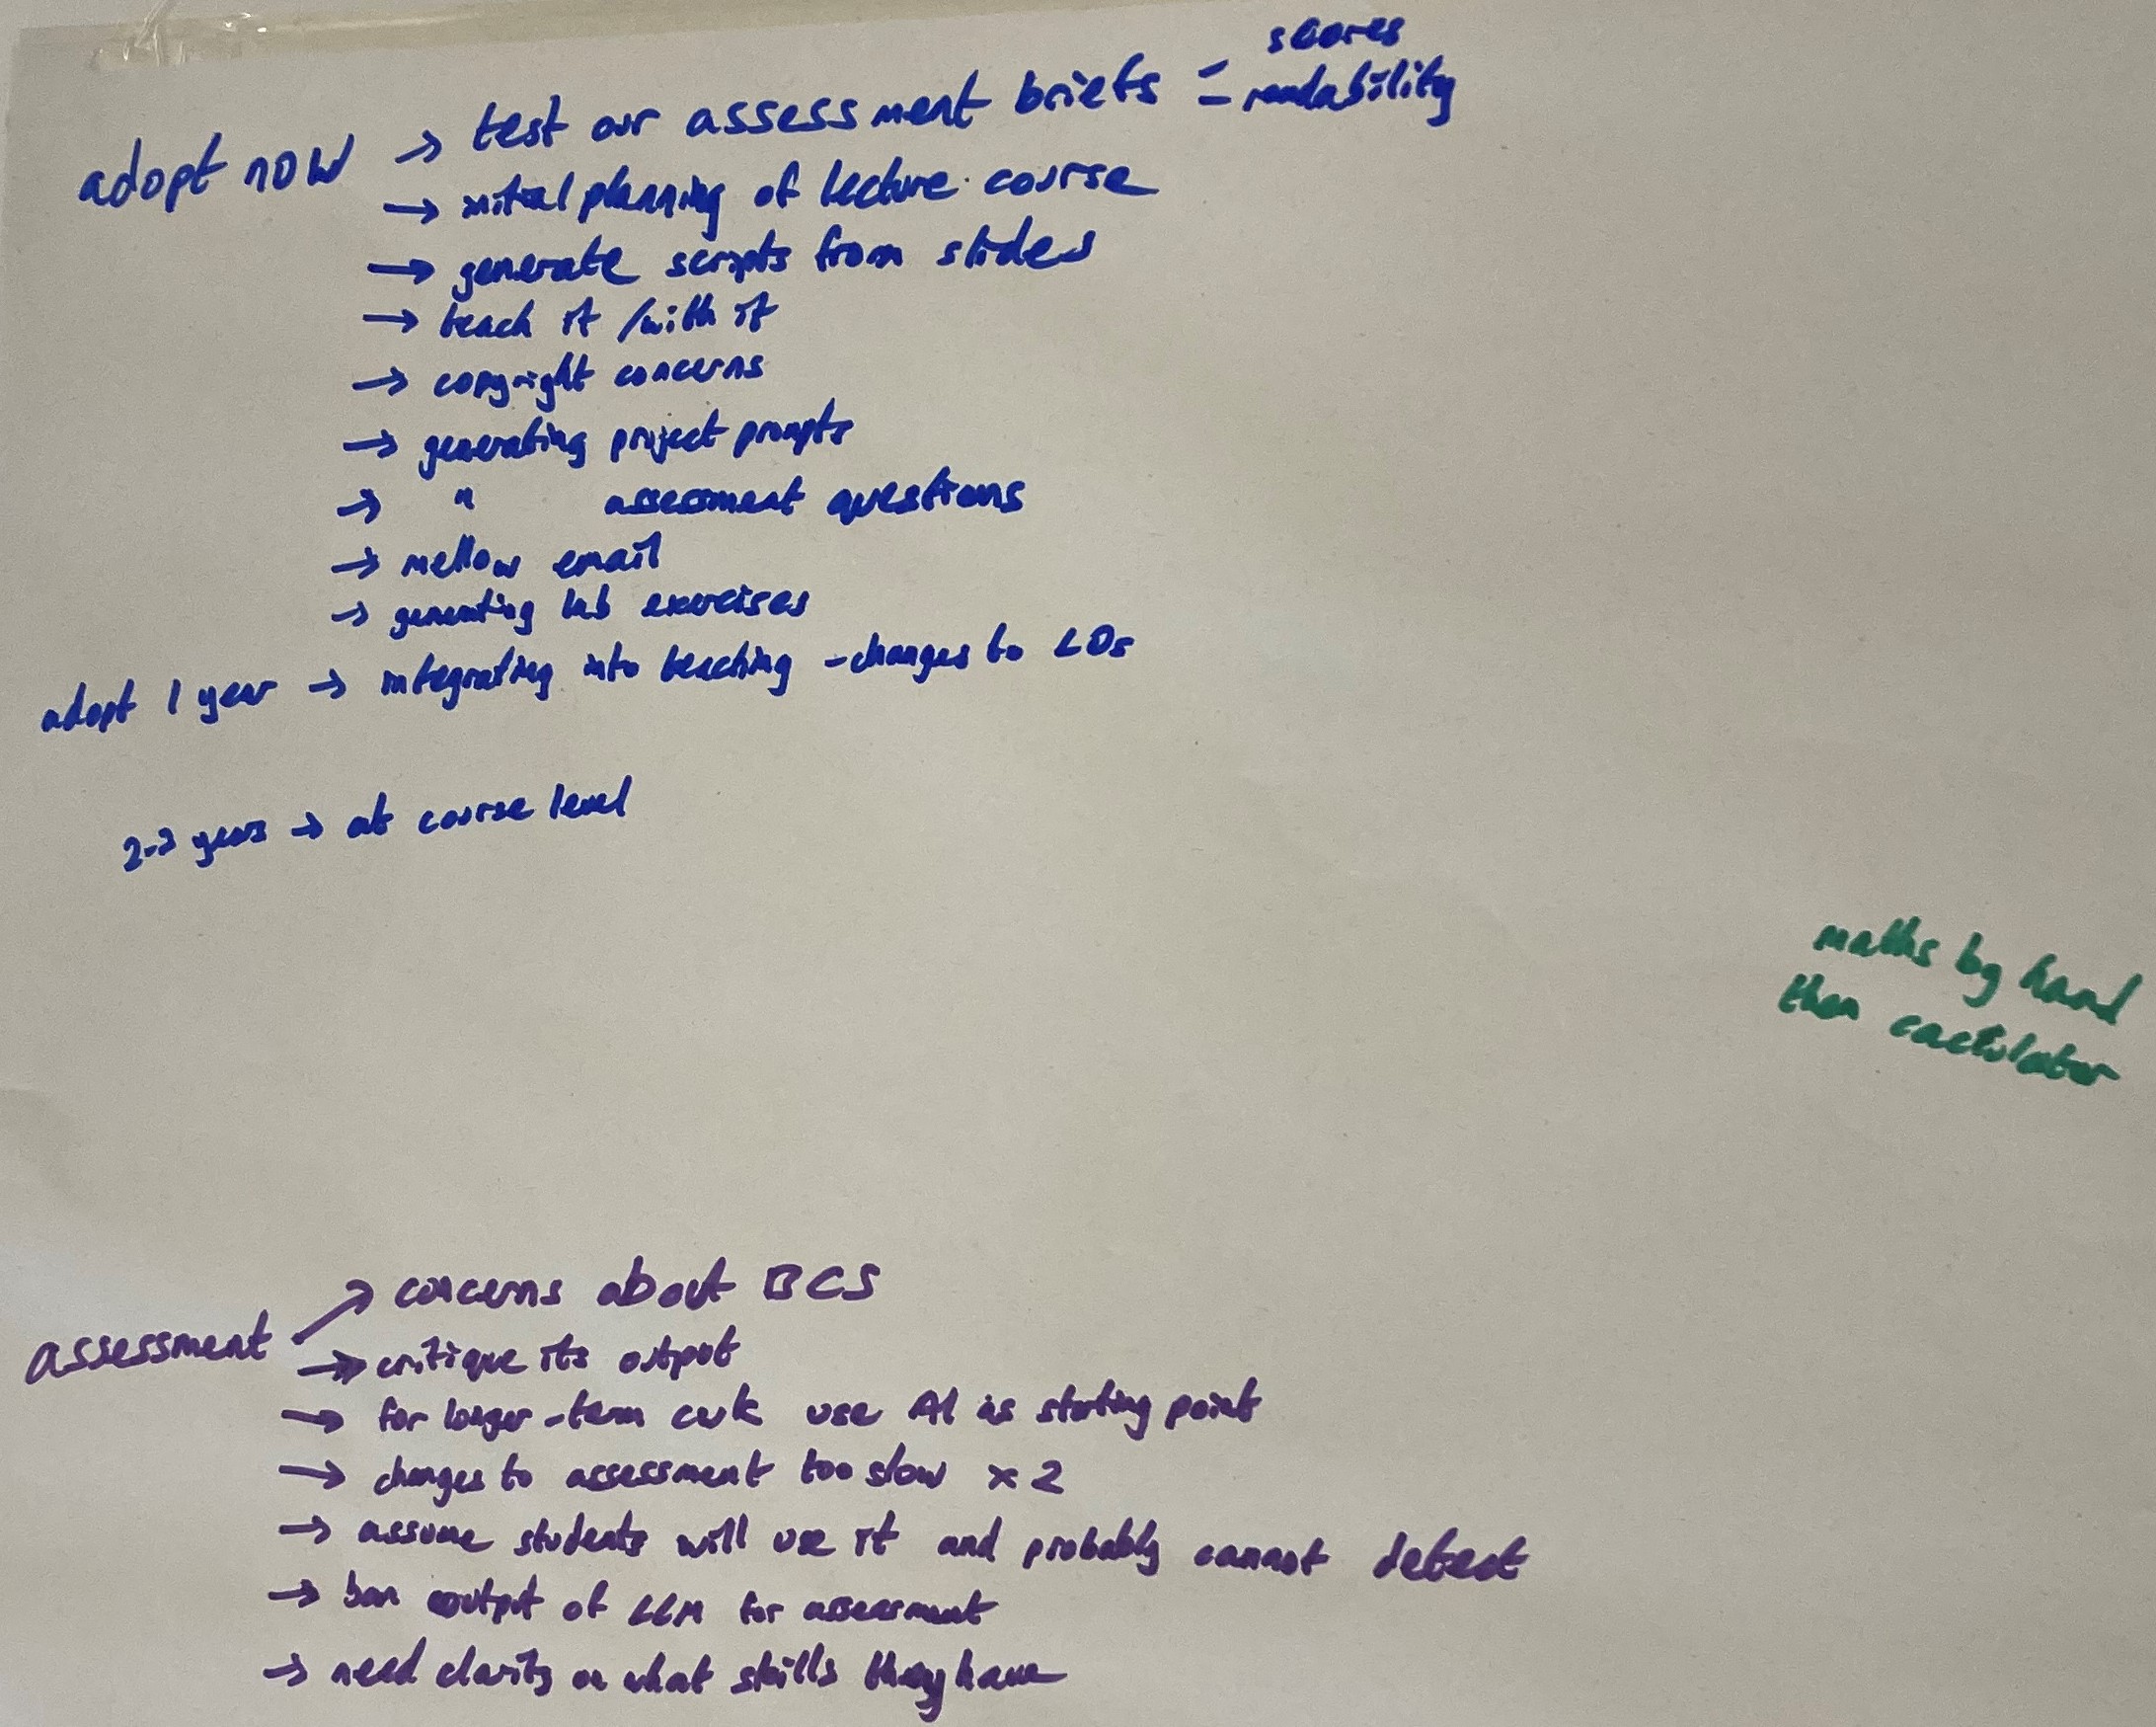 scores
adopt now → test our assessment briefs - readability
→ initial planning of lecture course
→ generate scripts from slides
→ teach it / with it
→ copyright concerns
→ generating project prompts
→ " assessment questions
→ mellow email
→ generating lab exercises
adopt 1 year → integrating into teaching - changes to LOs
2-3 years → at course level
maths by hand
then calculator
assessment → concerns about BCS
→ critique its output
→ for longer-term cwk use AI as starting point
→ changes to assessment too slow x 2
→ assume students will use it and probably cannot detect
→ ban output of LLM for assessment
→ need clarity on what skills they have